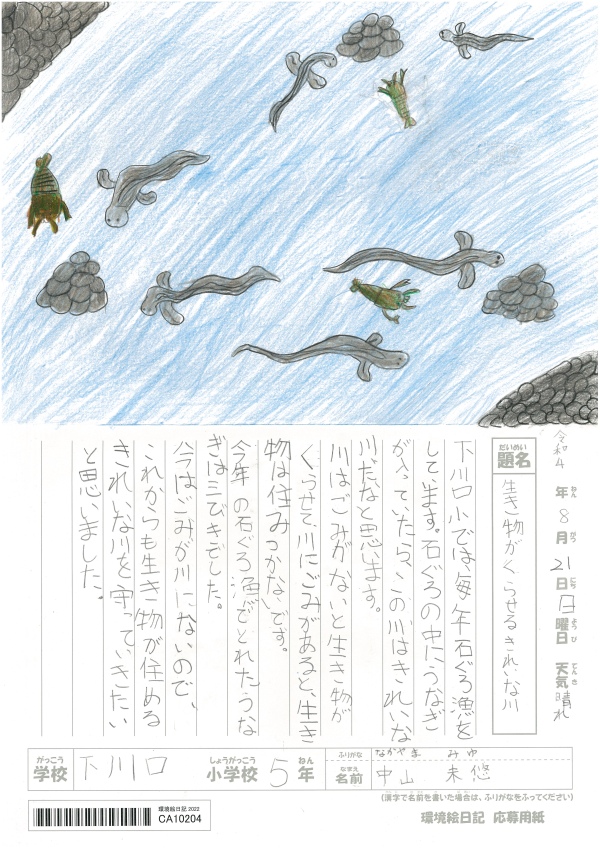 令和4年8月21日日曜日 天気晴れ
ねん
がつ
にち
ようび
てんき
だいめい
題名
生き物がくらせるきれいな川
下川口小では毎年石ぐろ漁を
しています。石ぐろの中にうなぎ
が入っていたら、この川はきれいな
川だなと思います。
川はごみがないと生き物が
くらせて、川にごみがあると、生き
物は住みつかないです。
今年の石ぐろ漁でとれたうな
ぎは三びきでした。
今はごみが川にないので、
これからも生き物が住める
きれいな川を守っていきたい
と思いました。
がっこう
学校
下川口
しょうがっこう
小学校
5
ねん
年
ふりがな
なかやま みゆ
なまえ
名前
中山 未悠
(漢字で名前を書いた場合は、ふりがなをふってください)
環境絵日記 2022
CA10204
環境絵日記 応募用紙